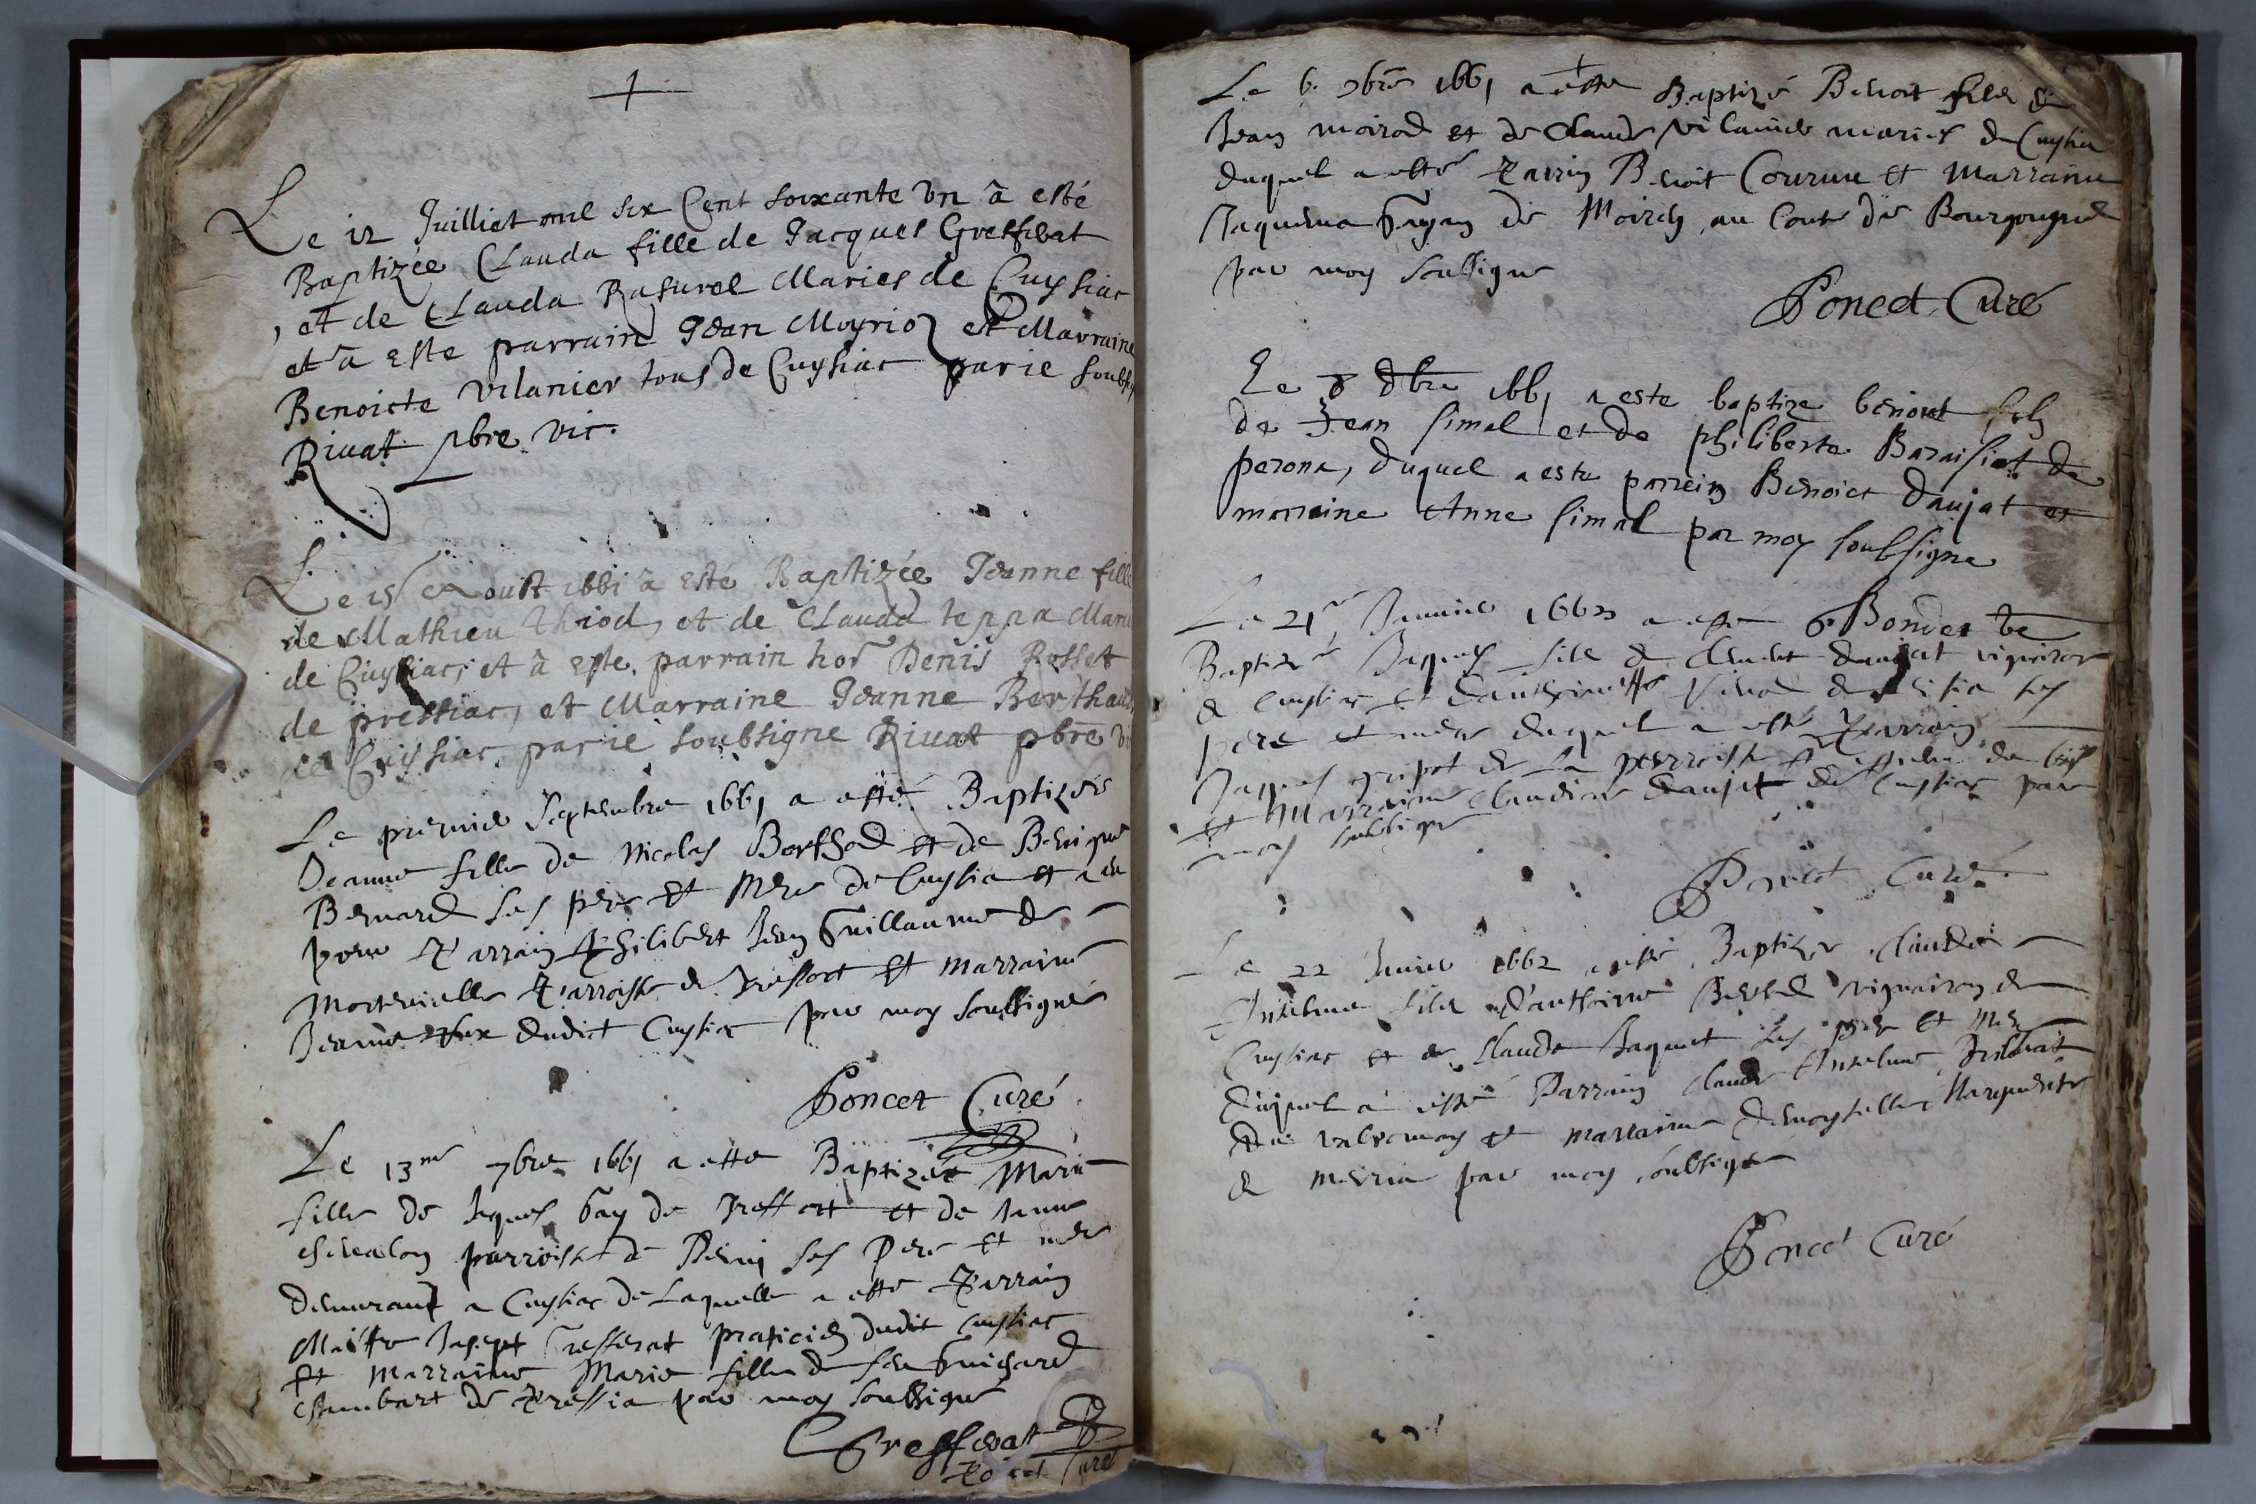 Le 12 Juilliet mil six Cent soixante un à esté
Baptizée Clauda fille de Jacques Greffeat
, et de Clauda Rasurel Maries de Cuysiac
et à este parrain Jean Moyrioz et Marraine
Benoicte Vilanier tous de Cuysiac par ie soubsig
Rivat pbre vic.
Le 15 Aoust 1661 à Esté Baptizée Jeanne fille
de Mathieu Thiod, et de Clauda teppa Mari
de Cuysiac, et à Este parrain hor Denis Rosset
de pressiac, et Marraine Jeanne Berthau
de Cuissiac, par ie soubsigne Rivat pbre v
Le premier Septembre 1661 a esté Baptizée
Jeanne fille de Nicolas Berthod et de Benigne
Bernard ses pere et Mere de Cuysia et a eu
pour Parrain Philibert Jean Guillaume de
Parroisse de Treffort et marraine
Jeanne dudict Cuysia par moy soussigné
Poncet Curé
Le 13me 7bre 1661 a esté Baptizée Marie
fille de Jaques Gay de Treffort et de Jeanne
Chevalon parroisse de ses Pere et mere
demurant a Cuysiac de Laquelle a esté Parrain
Maistre Josept Grefferat praticien dudit Cuysiac
et marraine Marie fille de feu Guichard
Chambart de Pressia par moy soubsigné
Greffeat
Poncet Curé
Le 6. 9bre 1661 a esté Baptizé Benoit fils de
Jean moirod et de Claude Vilanier maries de Cuysia
duquel a esté Parrin Benoit et Marraine
Jaquema de au Conté de Bourgougne
par moy soussigne
Poncet Curé
Le 8 Xbre 1661 a este baptize benoict fils
de Jean simal et de philiberte Baraisiat de
perona, duquel a este parrein Benoict Daujat et
marraine Anne simal par moy soubsigne
Le 21me Janvier 1662 a esté
Baptizé Jaques fils de daujat vigneron
de Cuysiac et d'anthoinette de ses
pere et mere duquel a esté Parrain
Jaques gripot de La parroisse
et Marraine Claudine Daujat de Cuysiac par
moy soubsigné
Poncet Curé
Le 22 Janvier 1662 a esté Baptizé Claude
Anselme fils d'anthoine vigneron de
Cuysiac et de Claude Jaquet ses pere et mere
duquel a esté Parrain Claude Anselme
de et marraine demoyselle Marguerite
de par moy soubsigne
Poncet Curé